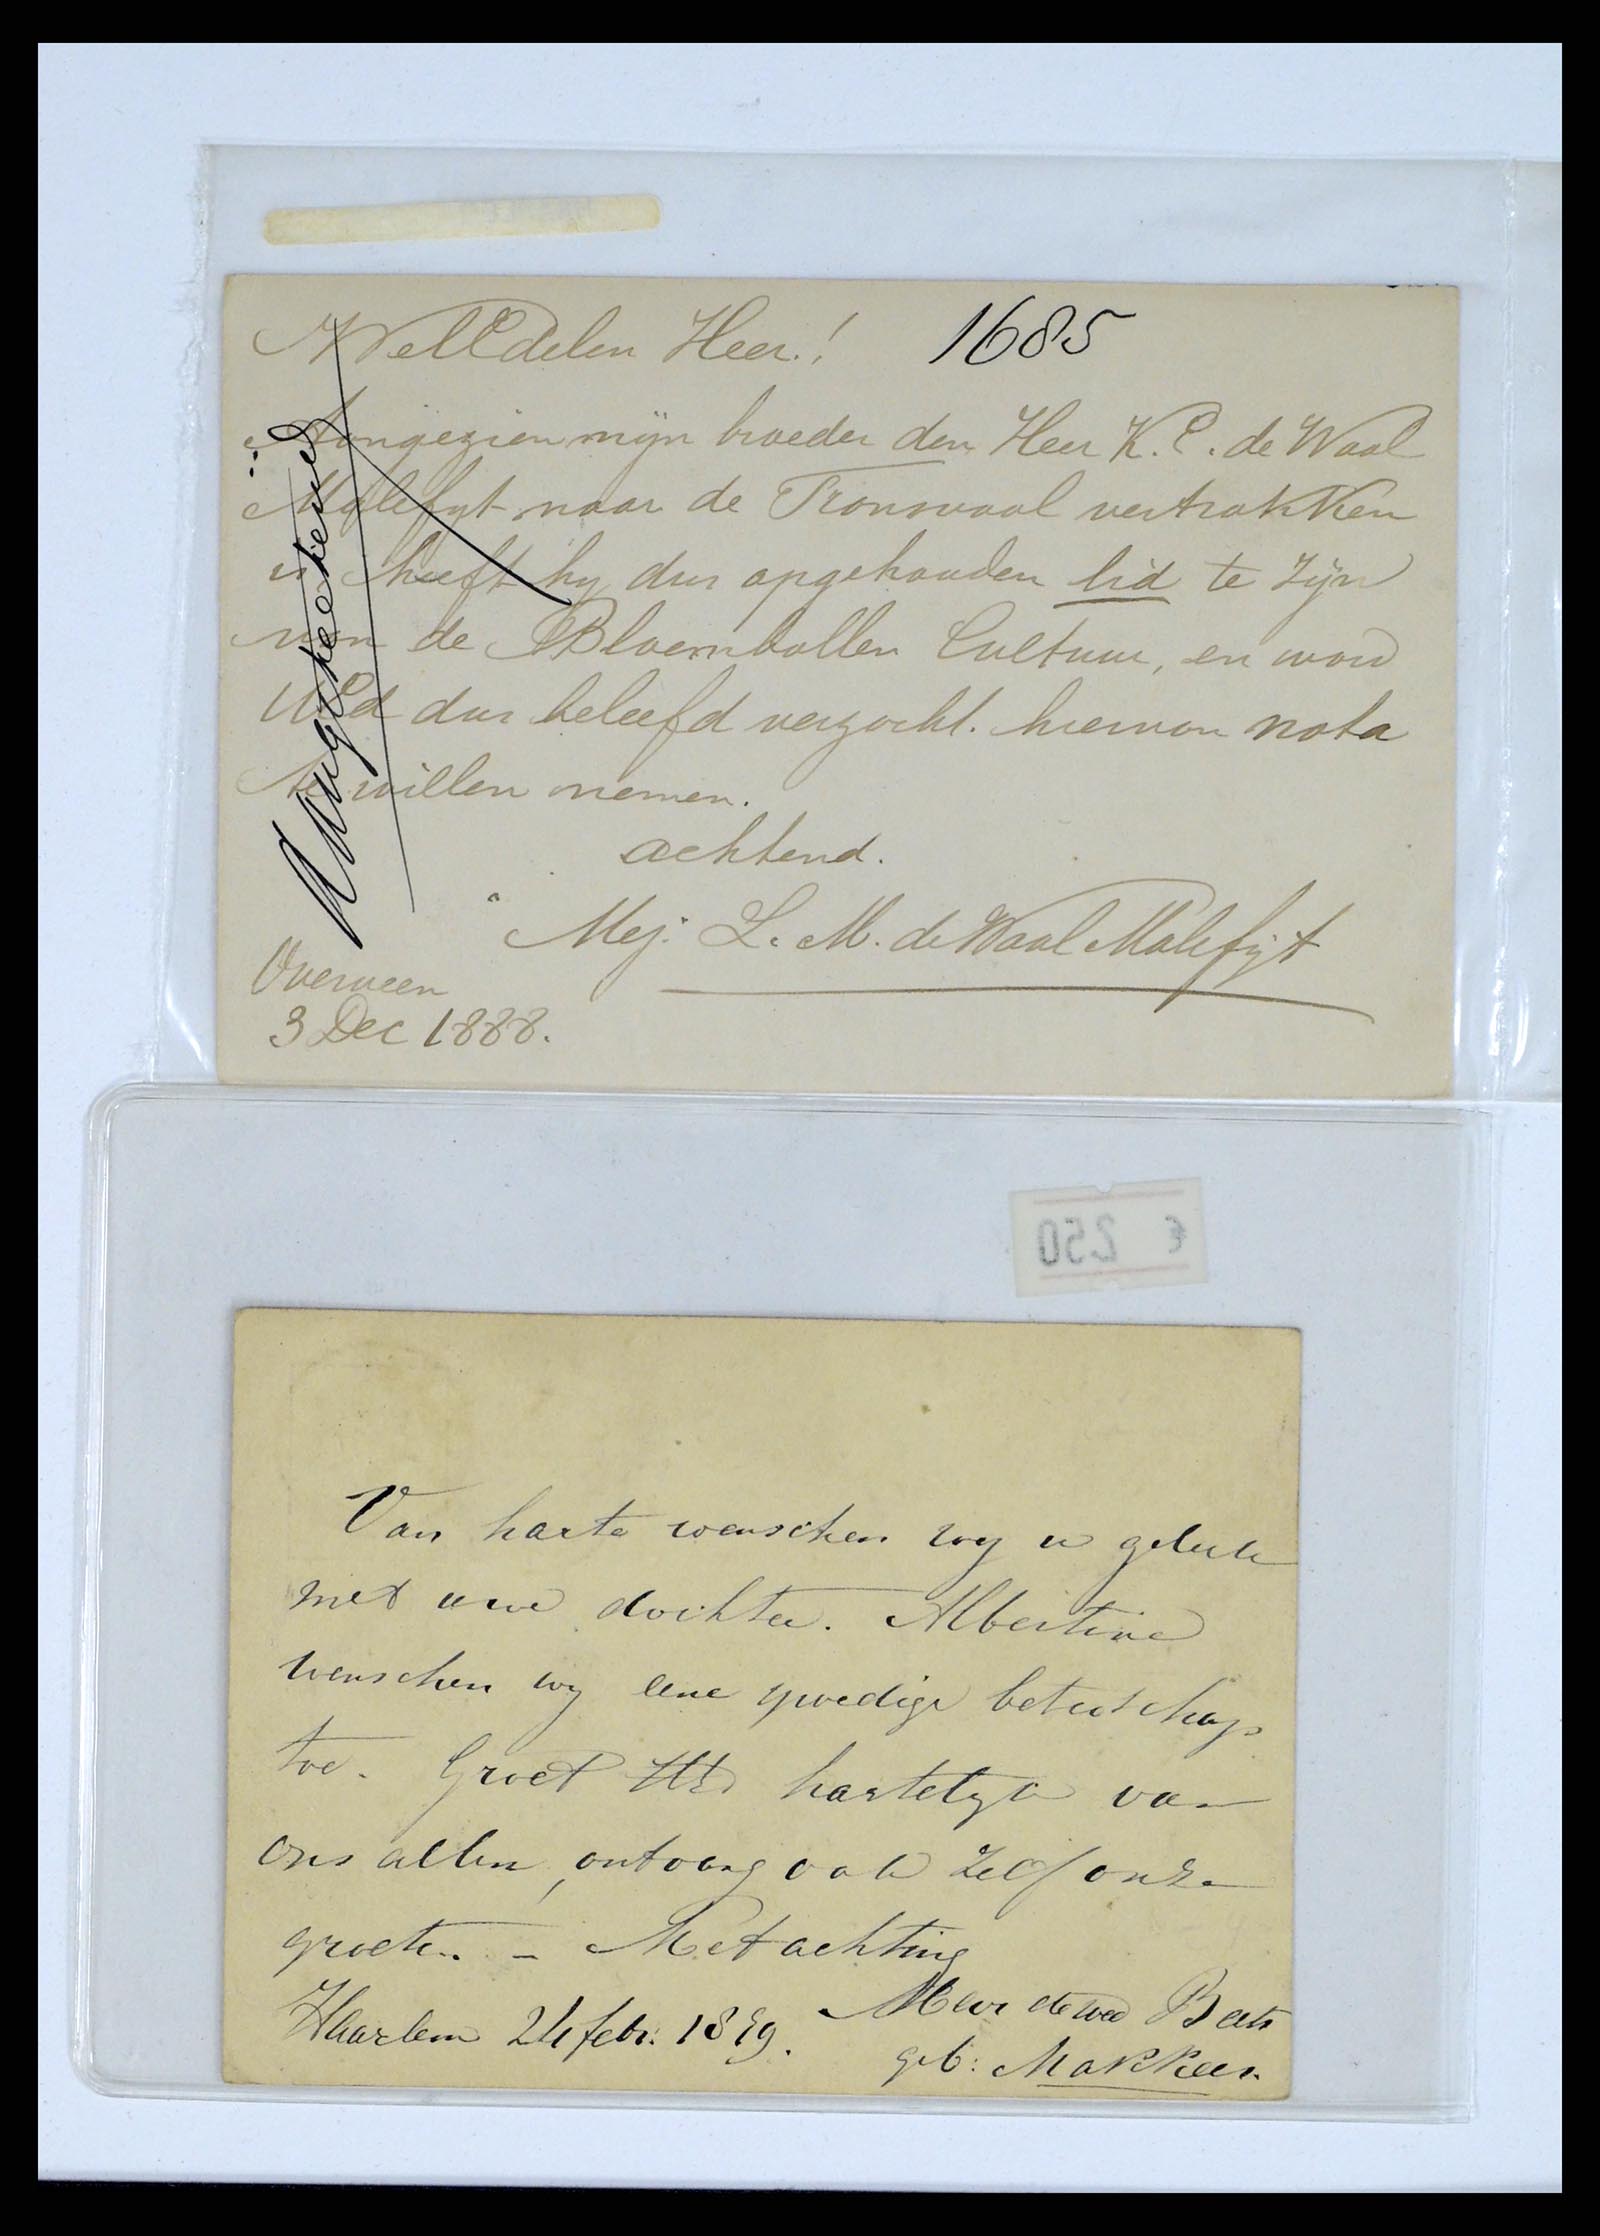 WelEdelen Heer.! 1685
Aangezien mijn broeder den Heer K. E. de Waal
Malefyt naar de Transvaal vertrokken
is heeft hy dus opgehouden lid te zijn
van de Bloembollen Cultuur, en word
UEd dus beleefd verzocht. hiervan nota
te willen nemen.
achtend.
Mej. L. M. de Waal Malefijt
Overveen
3 Dec 1888.
€ 2.50
Van harte wenschen wy u geluk
met uwe dochter. Albertine
wenschen wy eene spoedige beterschap
toe. Groet hartelyk van
ons allen, ontvang ook zelf onze
groeten. - Met achting
Mevr de wed Beets
Haarlem 24 febr: 18 9.
geb: Makkers.